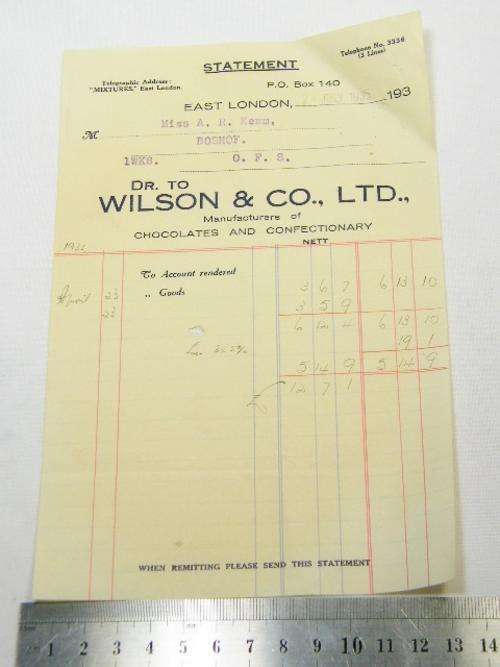 STATEMENT
Telephone No. 3356
(2 Lines)
Telegraphic Address:
"MIXTURES," East London
P.O. Box 140
EAST LONDON, 193
M Miss A. R. Kemm,
BOSHOF.
1WKS. O. F. S.
DR. TO
WILSON & CO., LTD.,
Manufacturers of
CHOCOLATES AND CONFECTIONARY
NETT
To Account rendered 6 13 10
April 23 ,, Goods 3 6 7
23 3 5 9
6 12 4 6 13 10
19 1
5 14 9 5 14 9
12 7 1
WHEN REMITTING PLEASE SEND THIS STATEMENT
1 2 3 4 5 6 7 8 9 10 11 12 13 14